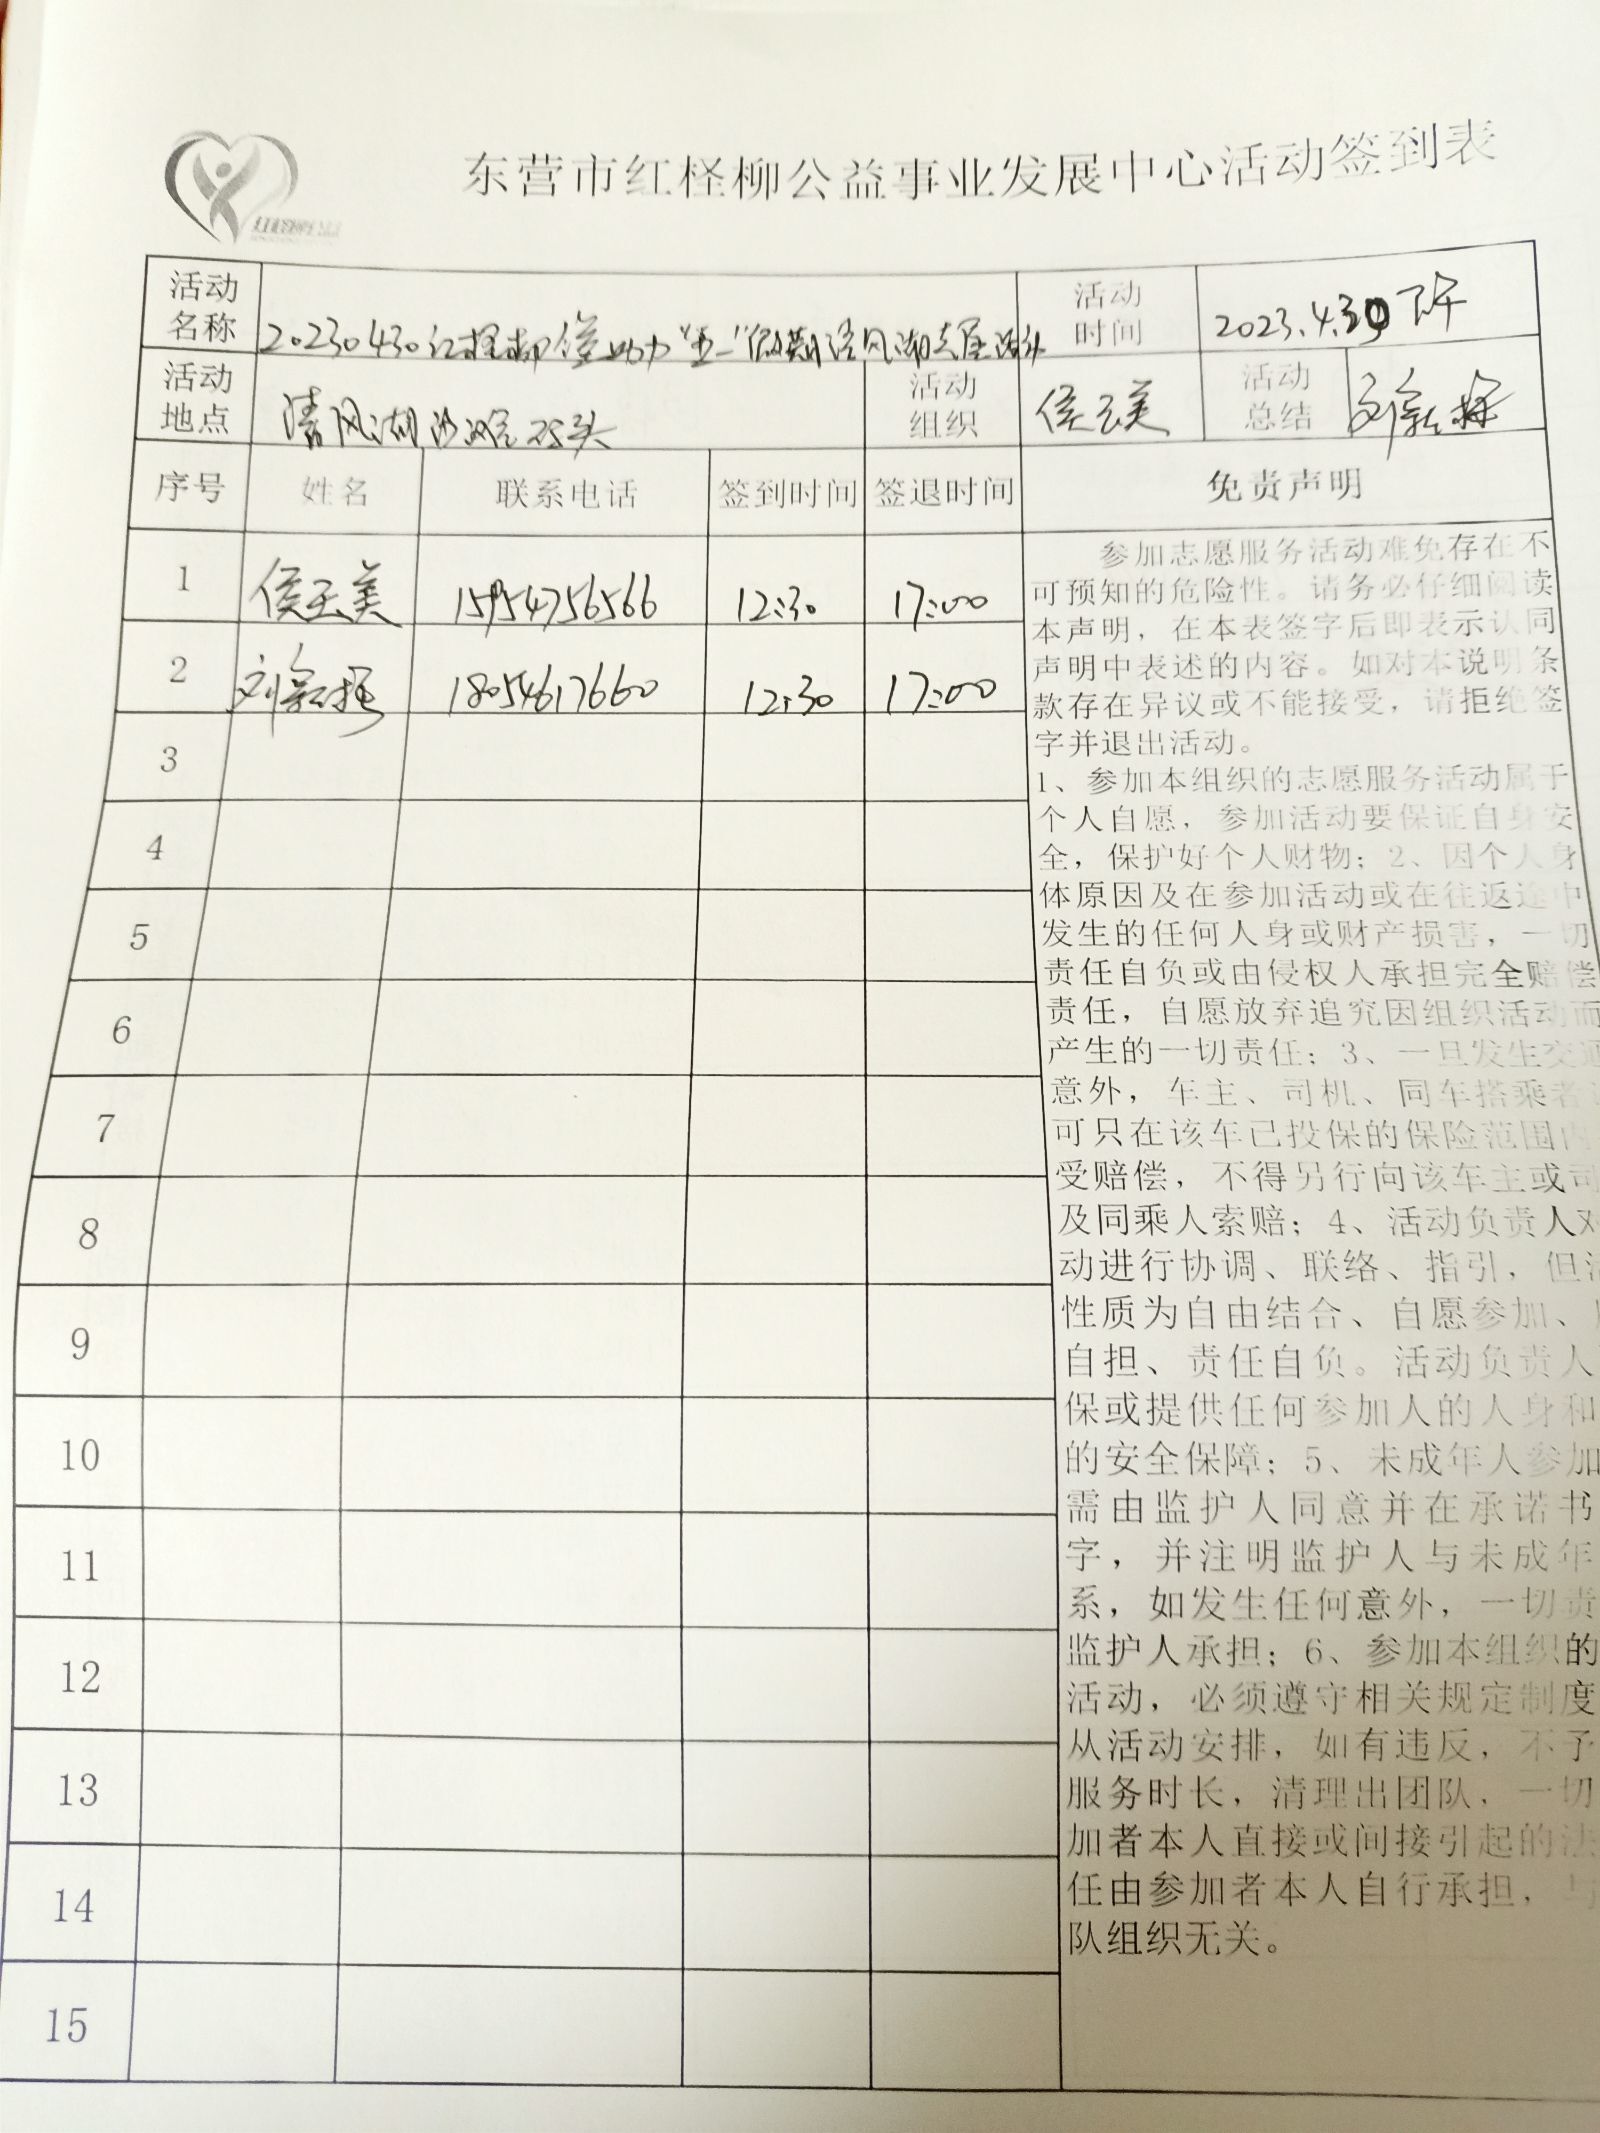 东营市红柽柳公益事业发展中心活动签到表
活动名称 20230430红柽柳 助力"五一"假期清风湖 活动 活动时间 2023.4.30下午
活动地点 清风湖 码头 活动组织 侯玉美 活动总结 刘新
序号 姓名 联系电话 签到时间 签退时间 免责声明
1 侯玉美 15954756566 12:30 17:00
2 刘新 18054617660 12:30 17:00
3
4
5
6
7
8
9
10
11
12
13
14
15
参加志愿服务活动难免存在不
可预知的危险性。请务必仔细阅读
本声明，在本表签字后即表示认同
声明中表述的内容。如对本说明条
款存在异议或不能接受，请拒绝签
字并退出活动。
1、参加本组织的志愿服务活动属于
个人自愿，参加活动要保证自身安
全，保护好个人财物；2、因个人身
体原因及在参加活动或在往返途中
发生的任何人身或财产损害，一切
责任自负或由侵权人承担完全赔偿
责任，自愿放弃追究因组织活动而
产生的一切责任；3、一旦发生交通
意外，车主、司机、同车搭乘者
可只在该车已投保的保险范围内
受赔偿，不得另行向该车主或司
及同乘人索赔；4、活动负责人对
动进行协调、联络、指引，但活
性质为自由结合、自愿参加、
自担、责任自负。活动负责人
保或提供任何参加人的人身和
的安全保障；5、未成年人参加
需由监护人同意并在承诺书
字，并注明监护人与未成年
系，如发生任何意外，一切责
监护人承担；6、参加本组织的
活动，必须遵守相关规定制度
从活动安排，如有违反，不予
服务时长，清理出团队，一切
加者本人直接或间接引起的法
任由参加者本人自行承担，与
队组织无关。